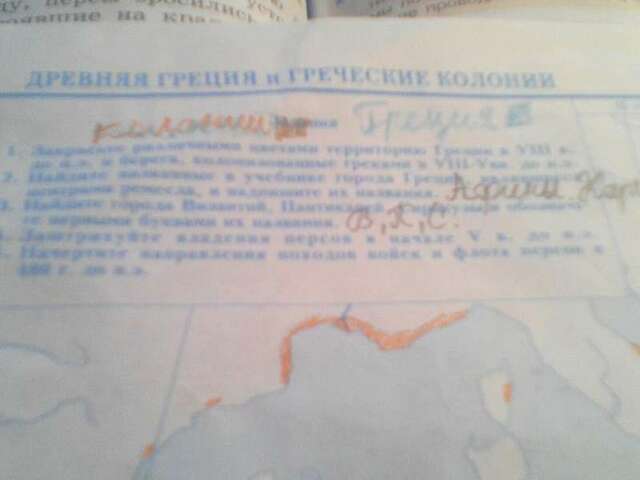 ду, персы бросились
ДРЕВНЯЯ ГРЕЦИЯ и ГРЕЧЕСКИЕ КОЛОНИИ
колонии Греция
1. Закрасьте различными цветами территорию Греции в VIII в.
до н.э. и берега, колонизованные греками в VIII-VI вв. до н.э.
2. Найдите названные в учебнике города Греции,
центрами ремесла, и надпишите их названия. Афины
3. Найдите города Византий, Пантикапей,
те первыми буквами их названия. В, П, С.
4. Заштрихуйте владения персов в начале V в. до н.э.
5. Начертите направления походов войск и флота персов в
480 г. до н.э.